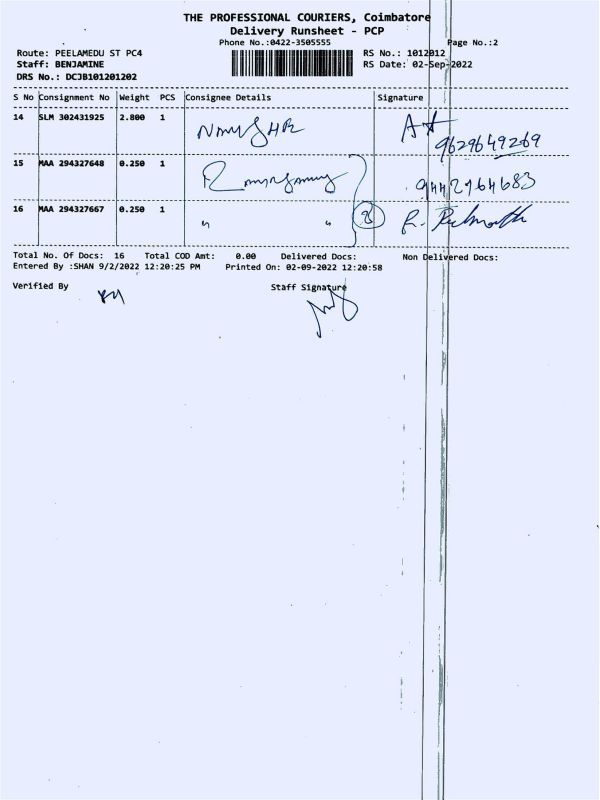 THE PROFESSIONAL COURIERS, Coimbatore
Delivery Runsheet - PCP
Phone No.:0422-3505555 Page No.:2
Route: PEELAMEDU ST PC4 RS No.: 1012012
Staff: BENJAMINE RS Date: 02-Sep-2022
DRS No.: DCJB101201202
S No Consignment No Weight PCS Consignee Details Signature
14 SLM 302431925 2.800 1
9629649269
15 MAA 294327648 0.250 1
9442964683
16 MAA 294327667 0.250 1 " "
Total No. Of Docs: 16 Total COD Amt: 0.00 Delivered Docs: Non Delivered Docs:
Entered By :SHAN 9/2/2022 12:20:25 PM Printed On: 02-09-2022 12:20:58
Verified By Staff Signature